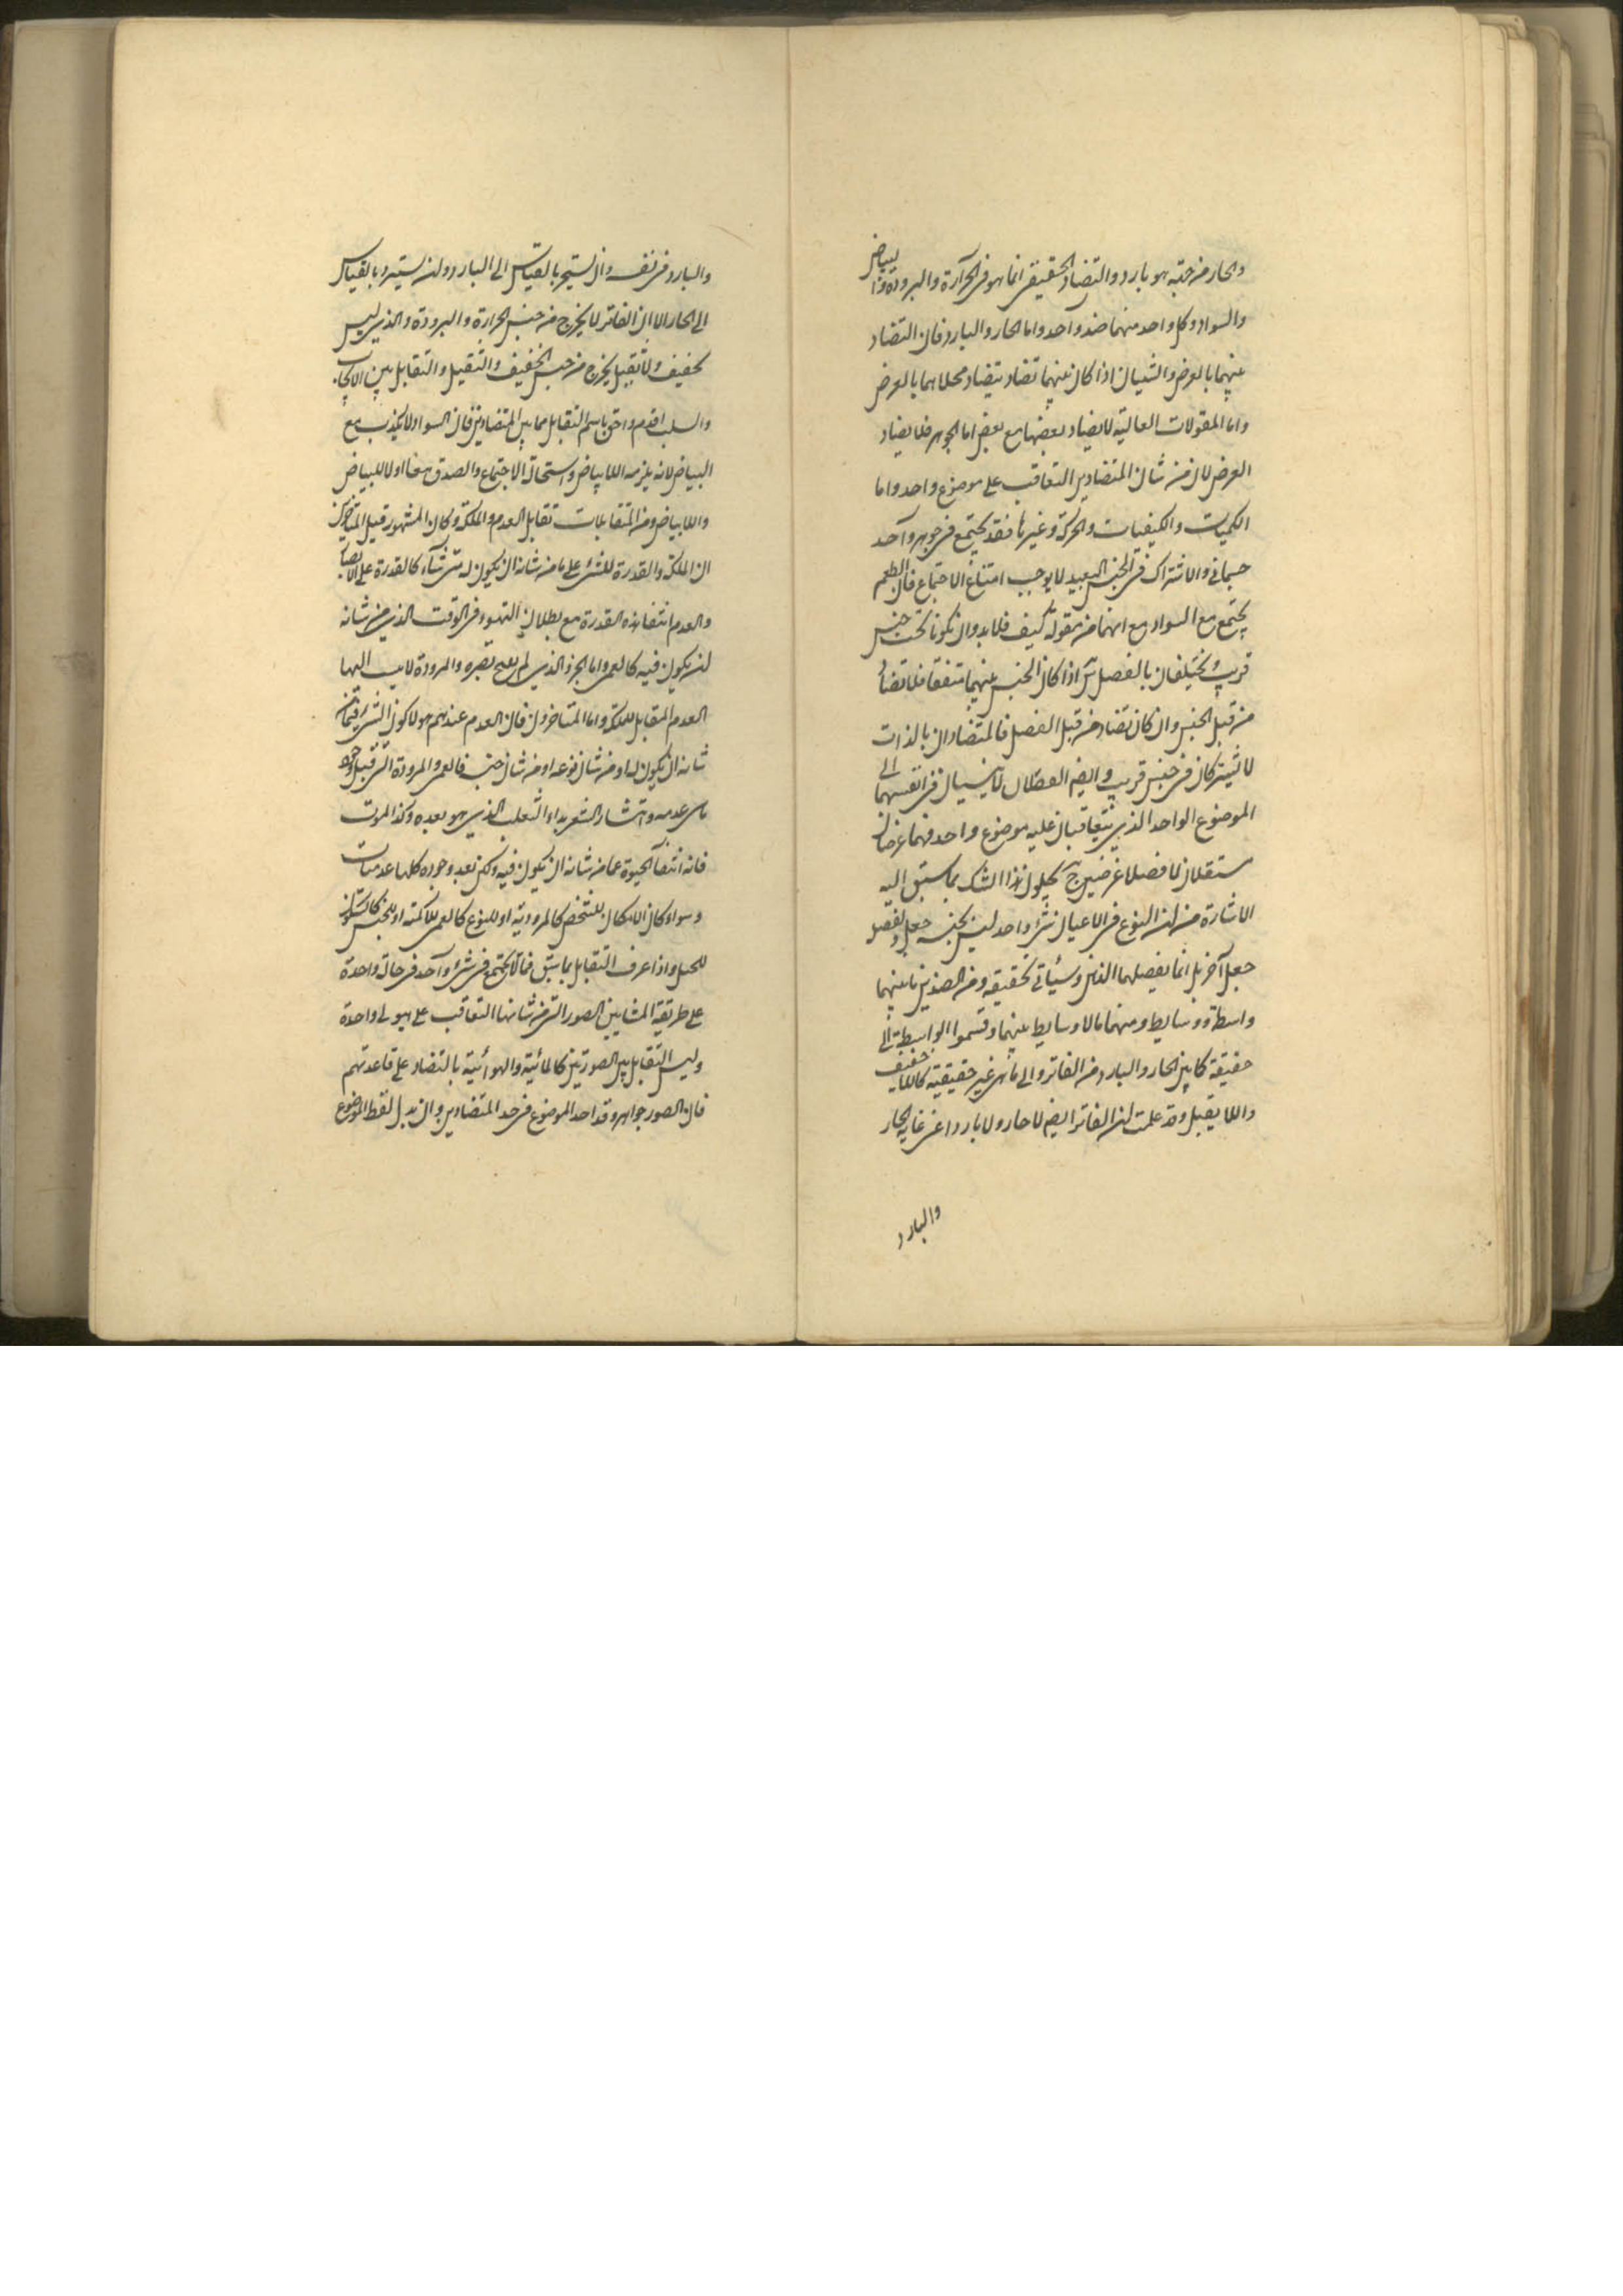 والحار من حيثية هو بارد والتضاد الحقيقى انما هو فى الحرارة والبرودة والبياض
والسواد وكل واحد منهما ضد واحد واما الحار والبارد فان التضاد
بينهما بالعرض والشيئان اذا كان بينهما تضاد يتضاد محلاهما بالعرض
واما المقولات العالية لا يضاد بعضها مع بعض اما الجوهر فلا يضاد
العرض لان من شان المتضادين التعاقب على موضوع واحد واما
الكميات والكيفيات والحركة وغيرها فقد يجتمع فى جوهر واحد
جسمانى والاشتراك فى الجنس البعيد لا يوجب امتناع الاجتماع فان الطعم
يجتمع مع السواد مع انهما من مقولة كيف فلا بد وان يكونا تحت جنس
قريب يختلفان بالفصل ثم اذا كان الجنس بينهما متفقا فلا تضاد
من قبل الجنس وان كان تضاد من قبل الفصل فالمتضادان بالذات
لا يشتركان فى جنس قريب وايضا الفصلان لا ينسبان فى انفسهما الى
الموضوع الواحد الذى يتعاقبان عليه موضوع واحد فهما عرضان
مستقلان لا فصلا عرضين ح يحلون هذا الشك بما سبق اليه
الاشارة من ان النوع فى الاعيان شىء واحد ليس لجنسه جعل ولفصله
جعل آخر بل انما يفصلهما الذهن وسيأتى تحقيقه ومن الضدين ما بينهما
واسطة ووسايط ومنهما ما لا وسايط بينهما وقسموا الواسطة الى
حقيقة كما بين الحار والبارد من الفاتر والى ما هى غير حقيقية كاللاخفيف
واللاثقيل وقد علمت ان الفاتر ايضا لا حار ولا بارد اعنى غاية الحار
والبارد
والبارد فى نفسه وان يستحر بالقياس الى البارد وان يستبرد بالقياس
الى الحار الا ان الفاتر لا يخرج من جنس الحرارة والبرودة والذى ليس
بخفيف ولا ثقيل يخرج من جنس الخفيف والثقيل والتقابل بين الايجاب
والسلب اقدم واحق باسم التقابل مما بين المتضادين فان السواد لا يكذب مع
البياض لانه يلزمه اللابياض واستحالة الاجتماع والصدق معا اولا للبياض
واللابياض ومن المتقابلات تقابل العدم والملكة وكان المشهور قبل المتاخرين
ان الملكة والقدرة للشىء على ما من شانه ان يكون له متى شاء كالقدرة على الابصار
والعدم انتفا هذه القدرة مع بطلان التهيوء فى الوقت الذى من شانه
ان يكون فيه كالعمى واما الجرو الذى لم يفتح بصره والمرودة لا ينسب اليها
العدم المقابل للملكة واما المتاخرون فان العدم عندهم هو لا كون الشىء فيما من
شانه ان يكون له او من شان نوعه او من شان جنسه فالعمى والمرودة التى قبل وجود
ما هى عدمه وانتشار الشعر بداء الثعلب الذى هو بعده وكذا الموت
فانه انتفآ الحيوة عما من شانه ان يكون فيه ولكن بعد وجوده كلها عدميات
وسواء كان الامكان للشخص كالمرودية او للنوع كالعمى للاكمه او للجنس كالسكون
للجبل واذا عرف التقابل بما سبق فما لا يجتمع فى شىء واحد فى حالة واحدة
على طريقة المشايين الصور التى من شانها التعاقب على هيولى واحدة
وليس التقابل بين الصورتين كالمائية والهوائية بالتضاد على قاعدتهم
فان الصور جواهر وقد اخذ الموضوع فى حد المتضادين وان بدل لفظ الموضوع